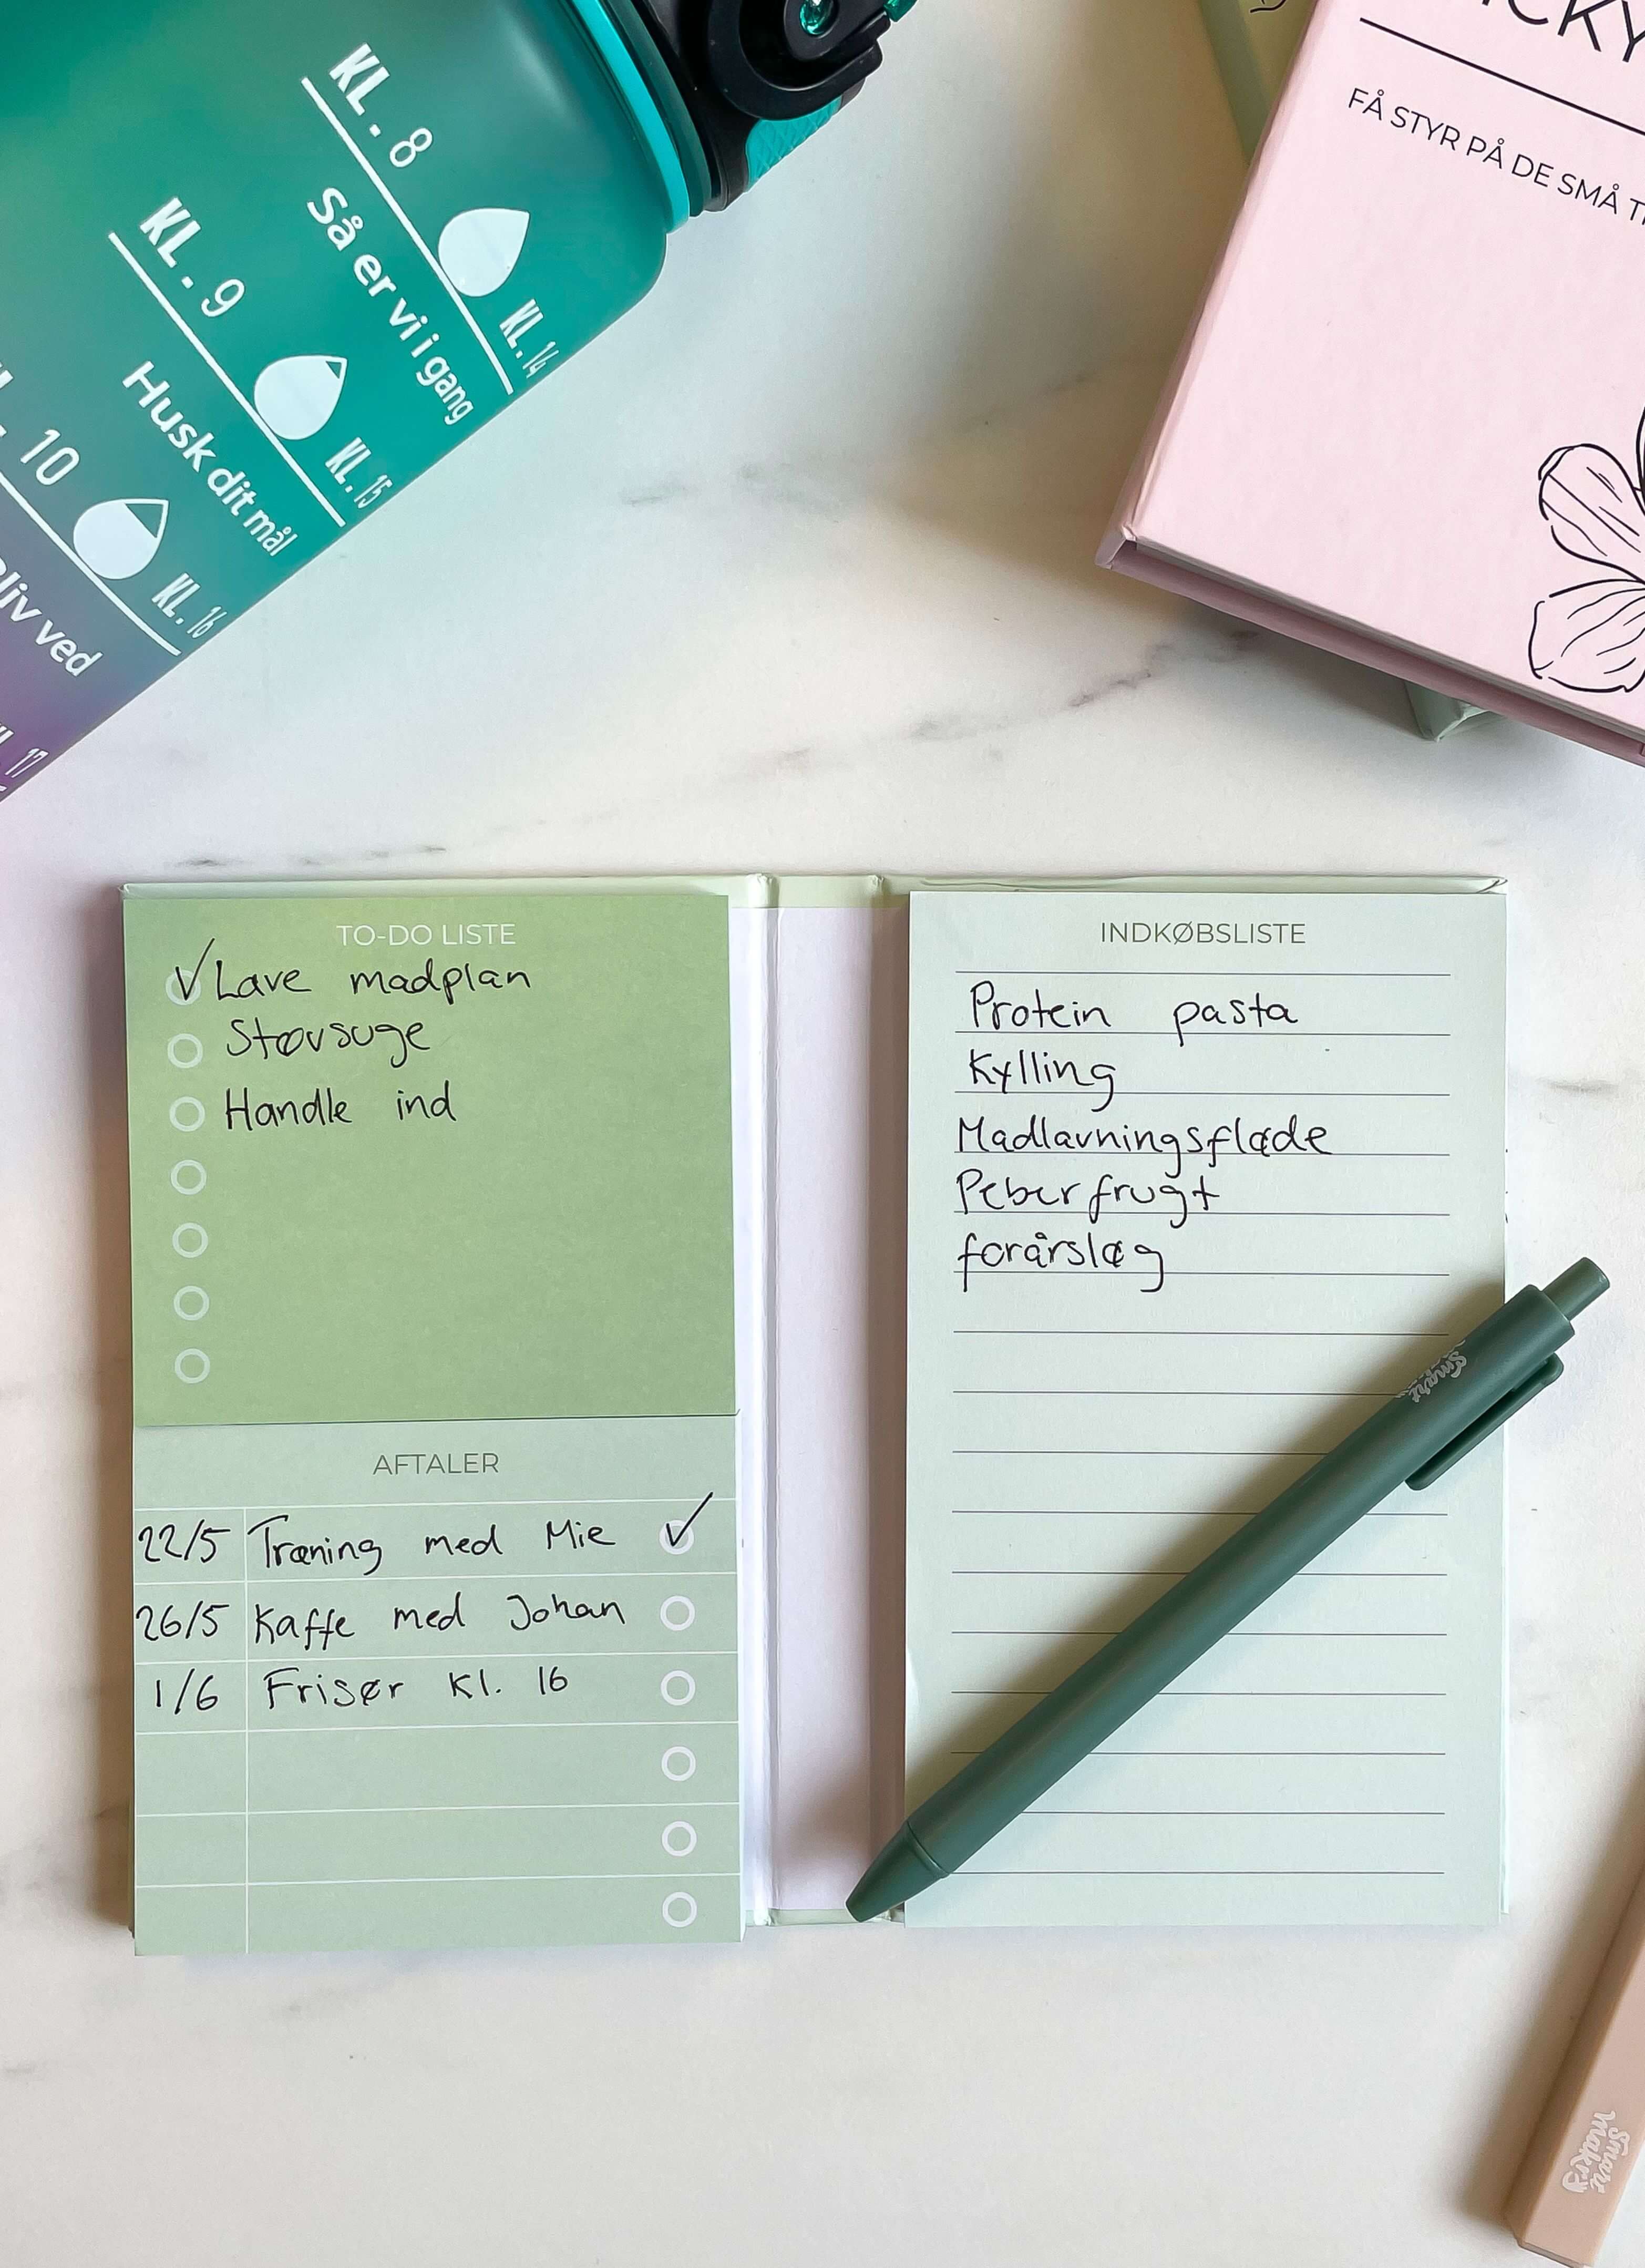 KL. 8
Så er vi i gang
KL. 14
KL. 9
Husk dit mål
KL. 15
10
Bliv ved
KL. 16
17
FÅ STYR PÅ DE SMÅ
TO-DO LISTE
Lave madplan
Støvsuge
Handle ind
AFTALER
22/5 Træning med Mie
26/5 Kaffe med Johan
1/6 Frisør kl. 16
INDKØBSLISTE
Protein pasta
Kylling
Madlavningsfløde
Peberfrugt
forårsløg
Smart
Smart
makery